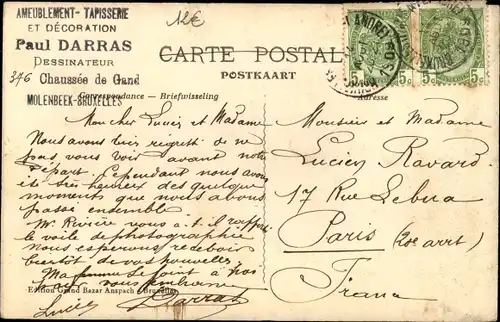 AMEUBLEMENT - TAPISSERIE
ET DÉCORATION
Paul DARRAS
DESSINATEUR
376 Chaussée de Gand
MOLENBEEK-BRUXELLES
12€
CARTE POSTALE
POSTKAART
Correspondance — Briefwisseling
Adresse
5c 5c 5c
Mon cher Lucien et Madame
Nous avons bien regretté de ne
pas vous voir avant notre
départ. Cependant nous avons
été très heureux des quelques
moments que nous avons
passé ensemble
Mr Rivière vous a-t-il rapporté
le voile de photographie
nous espérons recevoir
bientôt de vos nouvelles.
Ma femme se joint à moi
vous embrasse
Lucie Darras
Edition Grand Bazar Anspach - Bruxelles
Monsieur et Madame
Lucien Ravard
17 Rue Lebua
Paris (20e arrt)
France